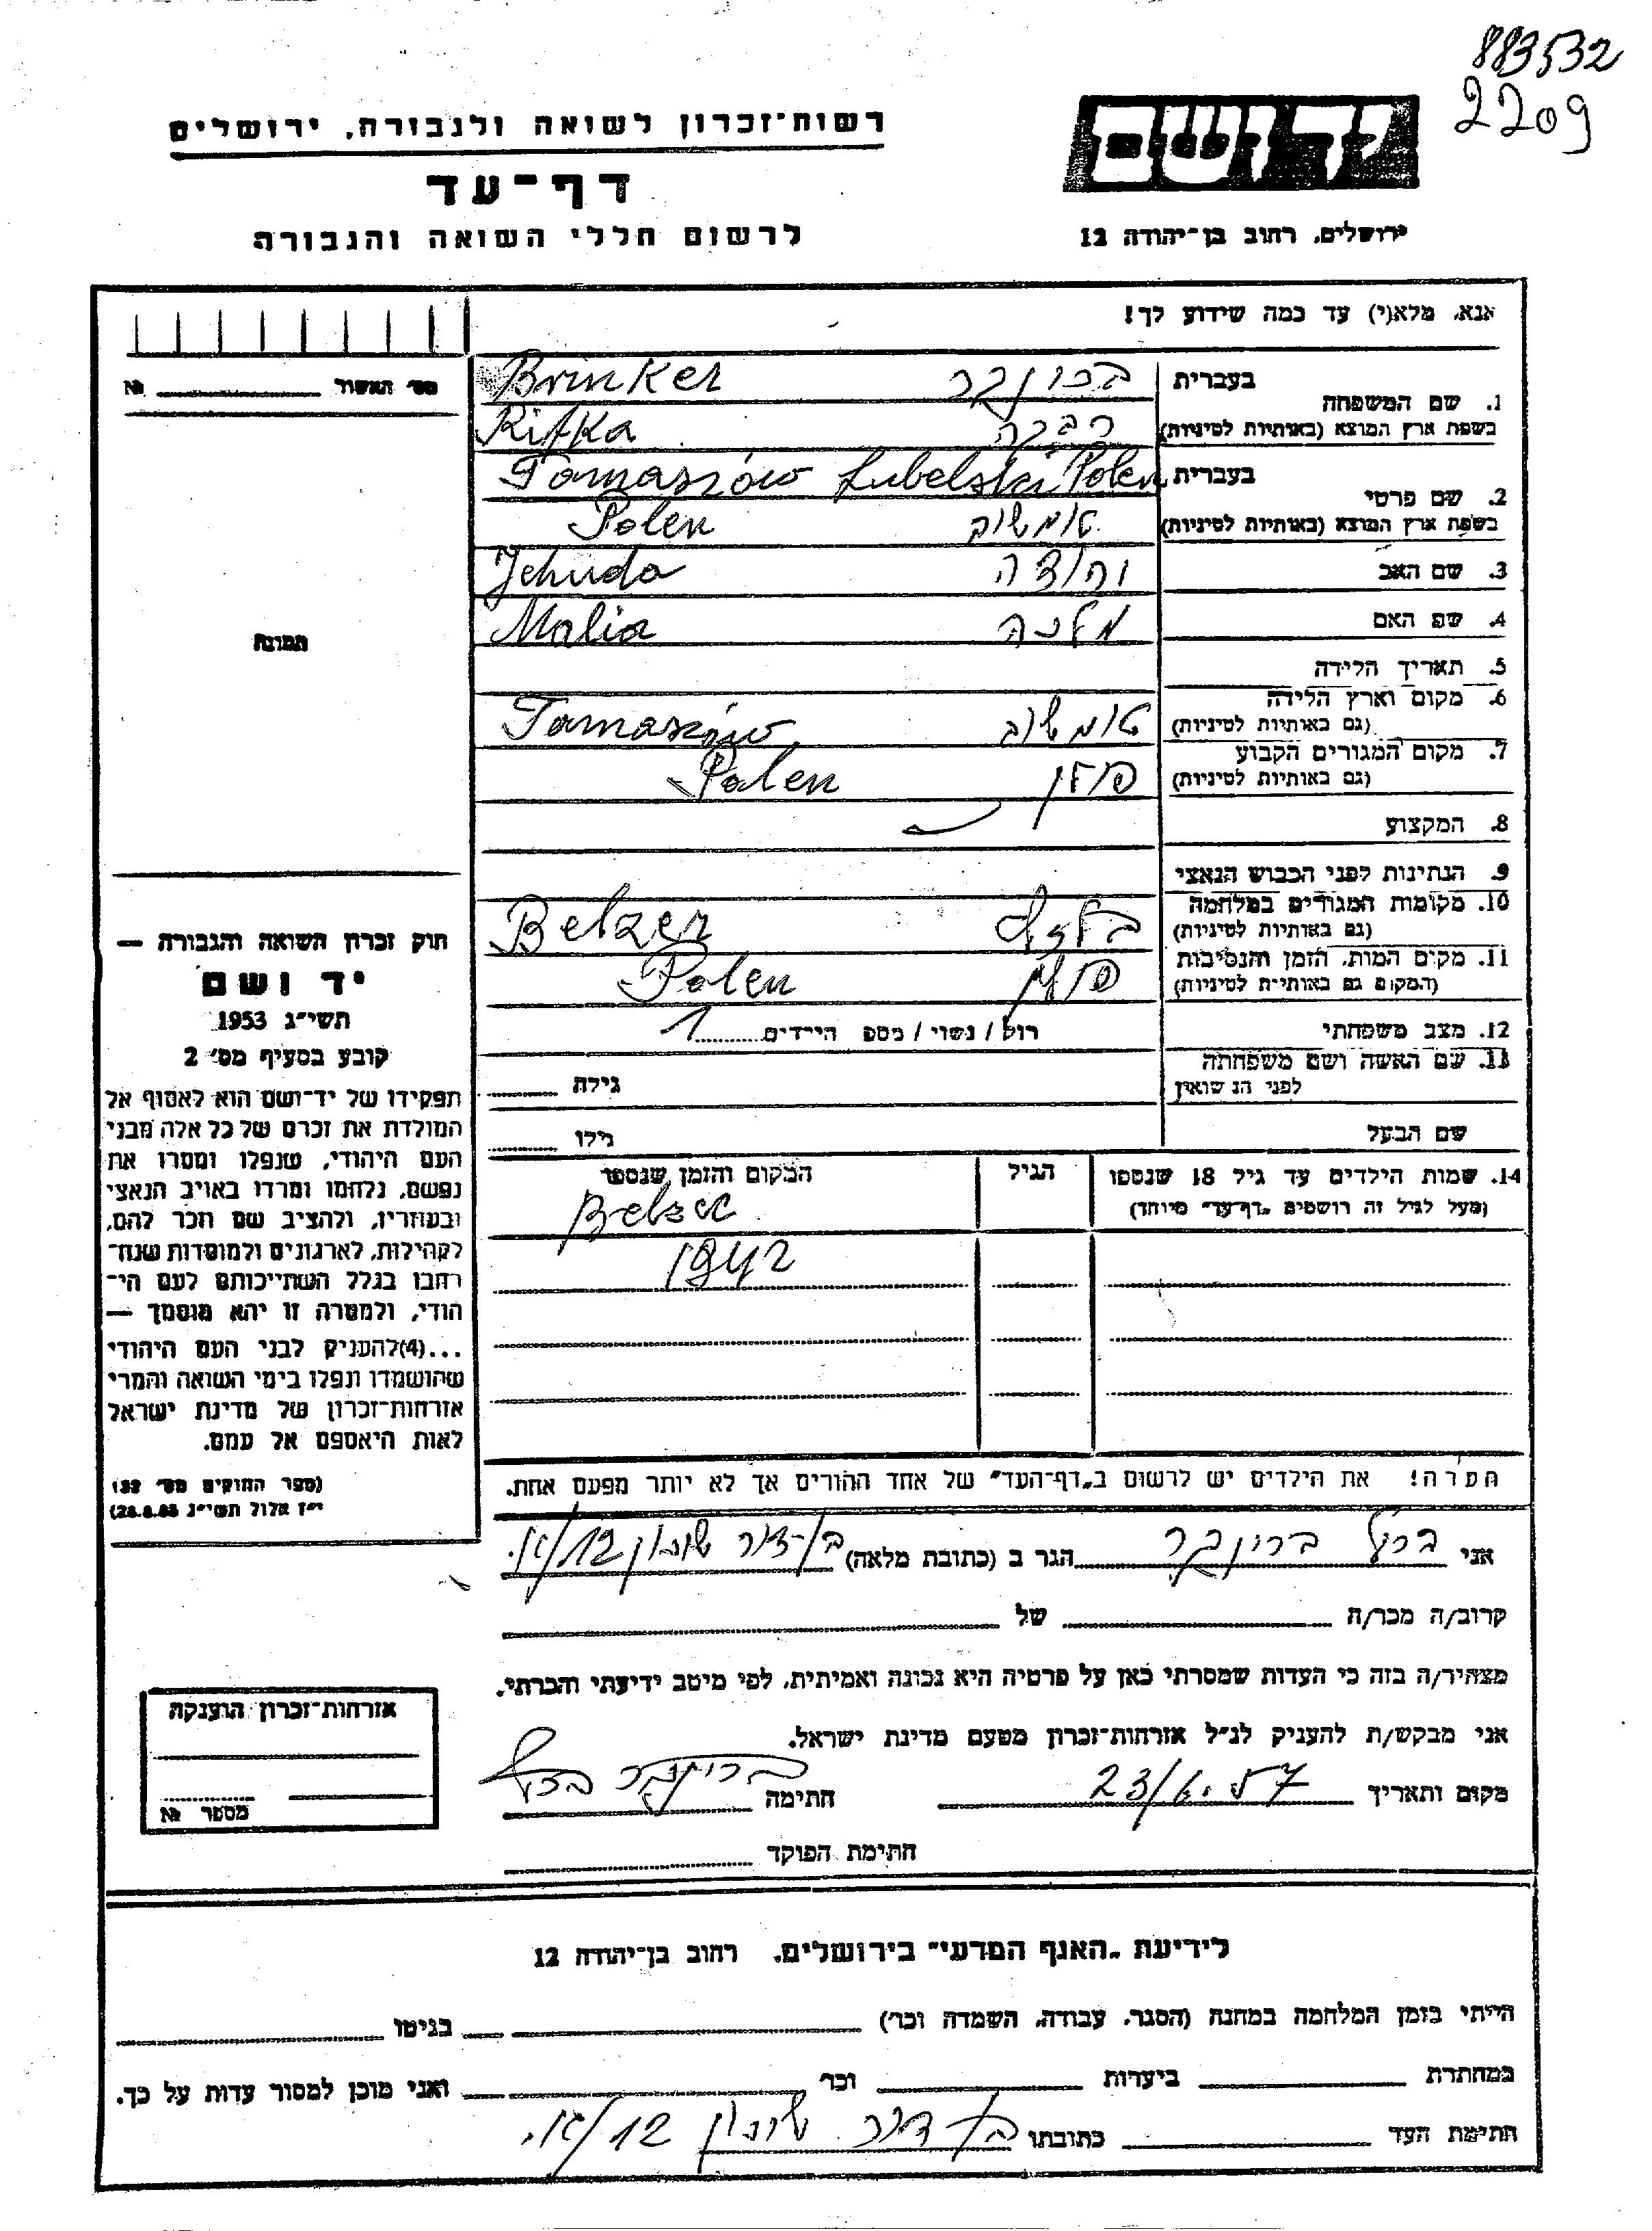 883532
2209
יד ושם
רשות־זכרון לשואה ולגבורה, ירושלים
דף־עד
לרשום חללי השואה והגבורה
ירושלים, רחוב בן־יהודה 12
אנא, מלא(י) עד כמה שידוע לך!
מס׳ האשור № 
1. שם המשפחה בעברית ברונקר Brinker
בשפת ארץ המוצא (באותיות לטיניות) רבקה Rifka
2. שם פרטי בעברית Tomaszów Lubelski Polen
בשפת ארץ המוצא (באותיות לטיניות) טומשוב Polen
3. שם האב יהודה Jehuda
4. שם האם מלכה Malia
5. תאריך הלידה
6. מקום וארץ הלידה
(גם באותיות לטיניות) טומשוב Tomaszów
7. מקום המגורים הקבוע
(גם באותיות לטיניות) פולן Polen
8. המקצוע
9. הנתינות לפני הכבוש הנאצי
10. מקומות המגורים במלחמה
(גם באותיות לטיניות) Belzer
11. מקום המות, הזמן והנסיבות
(המקום גם באותיות לטיניות) פולן Polen
12. מצב משפחתי רוק / נשוי / מספ׳ הילדים 1
13. שם האשה ושם משפחתה
לפני הנשואין גילה
שם הבעל גילו
14. שמות הילדים עד גיל 18 שנספו הגיל המקום והזמן שנספו
(מעל לגיל זה רושמים „דף־עד״ מיוחד)
Belzec
1942
תמונה
חוק זכרון השואה והגבורה —
יד ושם
תשי״ג 1953
קובע בסעיף מס׳ 2
תפקידו של יד־ושם הוא לאסוף אל
המולדת את זכרם של כל אלה מבני
העם היהודי, שנפלו ומסרו את
נפשם, נלחמו ומרדו באויב הנאצי
ובעוזריו, ולהציב שם וזכר להם,
לקהילות, לארגונים ולמוסדות שנח־
רבו בגלל השתייכותם לעם הי־
הודי, ולמטרה זו יהא מוסמך —
...(4)להעניק לבני העם היהודי
שהושמדו ונפלו בימי השואה והמרי
אזרחות־זכרון של מדינת ישראל
לאות היאספם אל עמם.
(ספר החוקים מס׳ 132
י״ז אלול תשי״ג
הערה! את הילדים יש לרשום ב„דף־העד״ של אחד ההורים אך לא יותר מפעם אחת.
אני ברינקר הגר ב (כתובת מלאה) 12/
קרוב/ה מכר/ה של
מצהיר/ה בזה כי העדות שמסרתי כאן על פרטיה היא נכונה ואמיתית, לפי מיטב ידיעתי והכרתי.
אני מבקש/ת להעניק לנ״ל אזרחות־זכרון מטעם מדינת ישראל.
מקום ותאריך 23/6.57 חתימה ברינקר
חתימת הפוקד
אזרחות־זכרון הוענקה
מספר №
לידיעת „האגף המדעי״ בירושלים, רחוב בן־יהודה 12
הייתי בזמן המלחמה במחנה (הסגר, עבודה, השמדה וכו׳) בגיטו
במחתרת ביערות וכו׳ ואני מוכן למסור עדות על כך.
חתימת העד כתובתו 12/